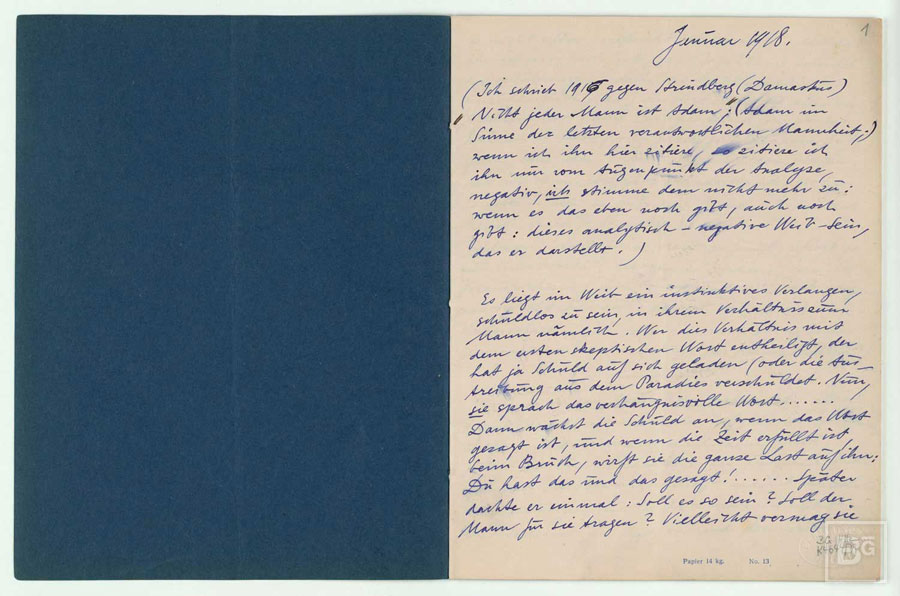 1
Januar 1918.
(Ich schrieb 1916 gegen Strindberg (Damaskus)
"Nicht jeder Mann ist Adam"; (Adam im
Sinne der letzten verantwortlichen Mannheit;)
wenn ich ihn hier zitiere, so zitiere ich
ihn nur vom Augenpunkt der Analyse,
negativ, ich stimme dem nicht mehr zu:
wenn es das eben noch gibt, auch noch
gibt: dieses analytisch-negative Weib-Sein,
das er darstellt.)
Es liegt im Weib ein instinktives Verlangen,
schuldlos zu sein, in ihrem Verhältnis zum
Mann nämlich. Wer dies Verhältnis mit
dem ersten skeptischen Wort entheiligt, der
hat ja Schuld auf sich geladen (oder die Aus-
treibung aus dem Paradies verschuldet. Nun,
sie sprach das verhängnisvolle Wort......
Dann wächst die Schuld an, wenn das Wort
gesagt ist, und wenn die Zeit erfüllt ist,
beim Bruch, wirft sie die ganze Last auf ihn:
Du hast das und das gesagt!...... Später
dachte er einmal: Soll es so sein? Soll der
Mann für sie tragen? Vielleicht vermag sie
Papier 14 kg. No. 13
BG